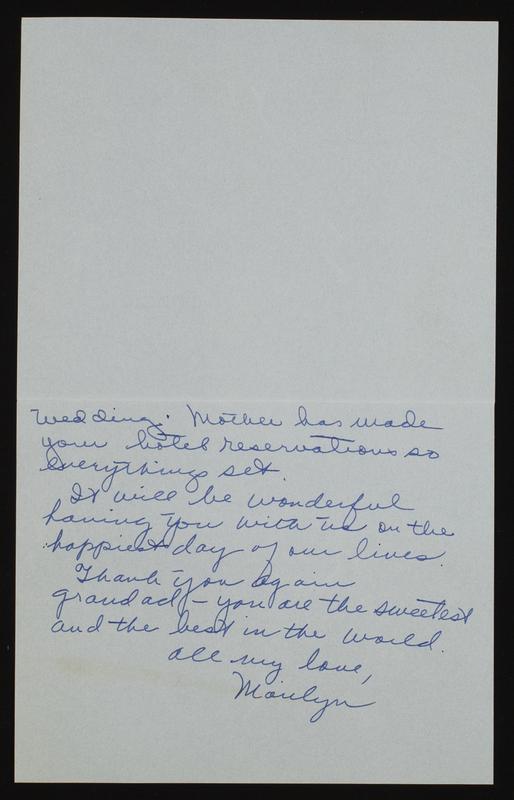 wedding. Mother has made
your hotel reservations so
everythings set.
It will be wonderful
having you with us on the
happiest day of our lives.
Thank you again
grandad - you are the sweetest
and the best in the world.
All my love,
Marilyn